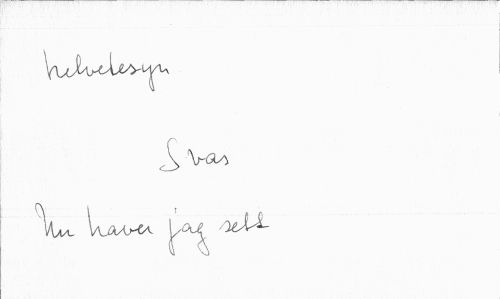 helvetesyn
Svar
Nu haver jag sett